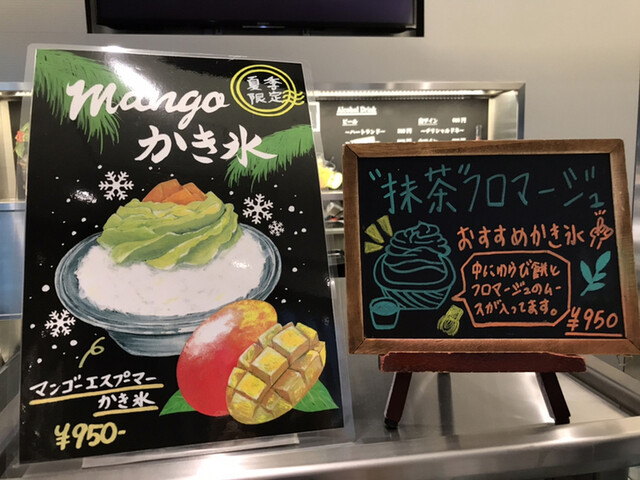 mango
夏季
限定
かき氷
マンゴーエスプーマー
かき氷
¥950-
Alcohol Drink
ビール
ーハートランドー
"抹茶"フロマージュ
おすすめかき氷
中にわらび餅と
フロマージュのムー
スが入ってます。
¥950